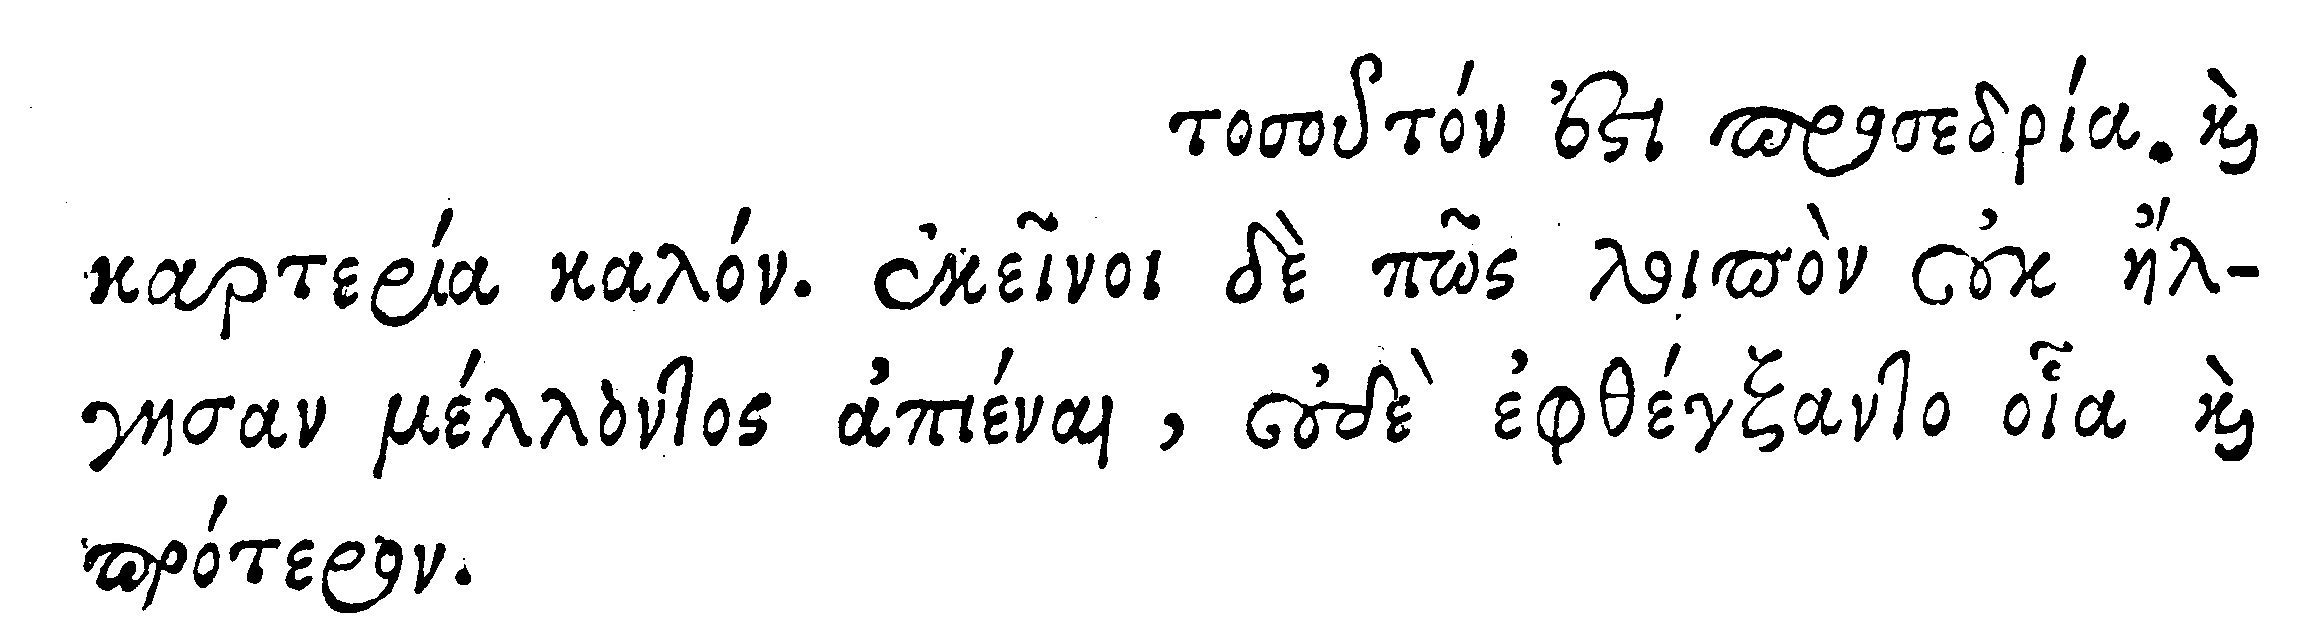 τοσοῦτόν ἐστι προσεδρία. καὶ
καρτερία καλόν. ἐκεῖνοι δὲ πῶς λοιπὸν οὐκ ἤλ-
γησαν μέλλοντος ἀπιέναι, οὐδὲ ἐφθέγξαντο οἷα καὶ
πρότερον.